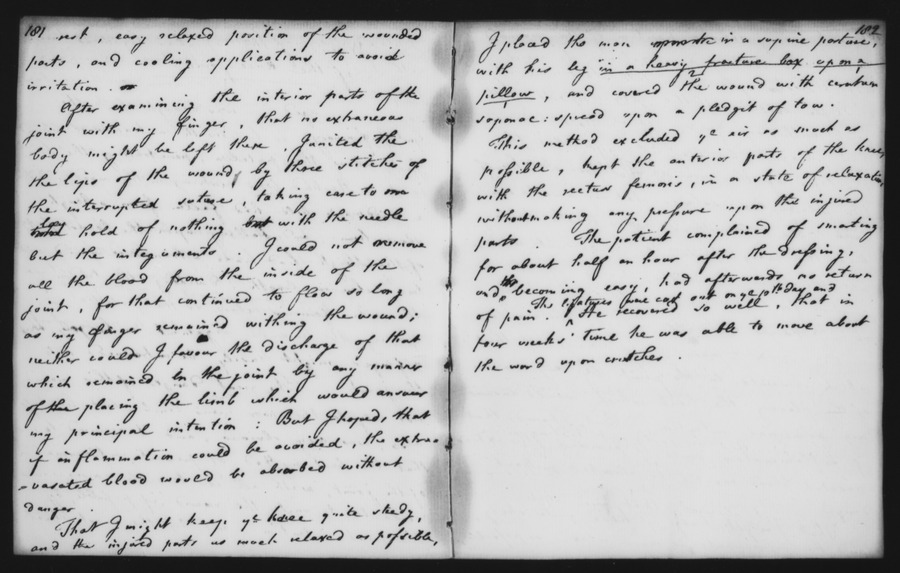 181
rest, easy relaxed position of the wounded
parts, and cooling applications to avoid
irritation.
After examining the interior parts of the
joint with my finger, that no extraneous
body might be left there, I united the
the lips of the wound, by three stitches of
the interrupted suture, taking care to
lay hold of nothing but with the needle
but the integuments. I could not remove
all the blood from the inside of the
joint, for that continued to flow so long
as my finger remained withing the wound;
neither could I favour the discharge of that
which remained in the joint by any manner
of placing the limb which would answer
my principal intention: But I hoped, that
if inflammation could be avoided, the extra
=vasated blood would be absorbed without
danger.
That I might keep ye knee quite steady,
and the injured parts as much relaxed as possible,
182
I placed the man in a supine posture,
with his leg in a heavy fracture box upon a
pillow, and covered the wound with ceratum
saponac: spread upon a pledgit of tow.
This method excluded ye air as much as
possible, kept the anterior parts of the knee,
with the rectus femoris, in a state of relaxation,
without making any pressure upon the injured
parts. The patient complained of smarting
for about half an hour after the dressing,
and then becoming easy, had afterwards no return
of pain. The ligatures were cut out on ye 10th day and
He recovered so well, that in
four weeks time he was able to move about
the ward upon crutches.